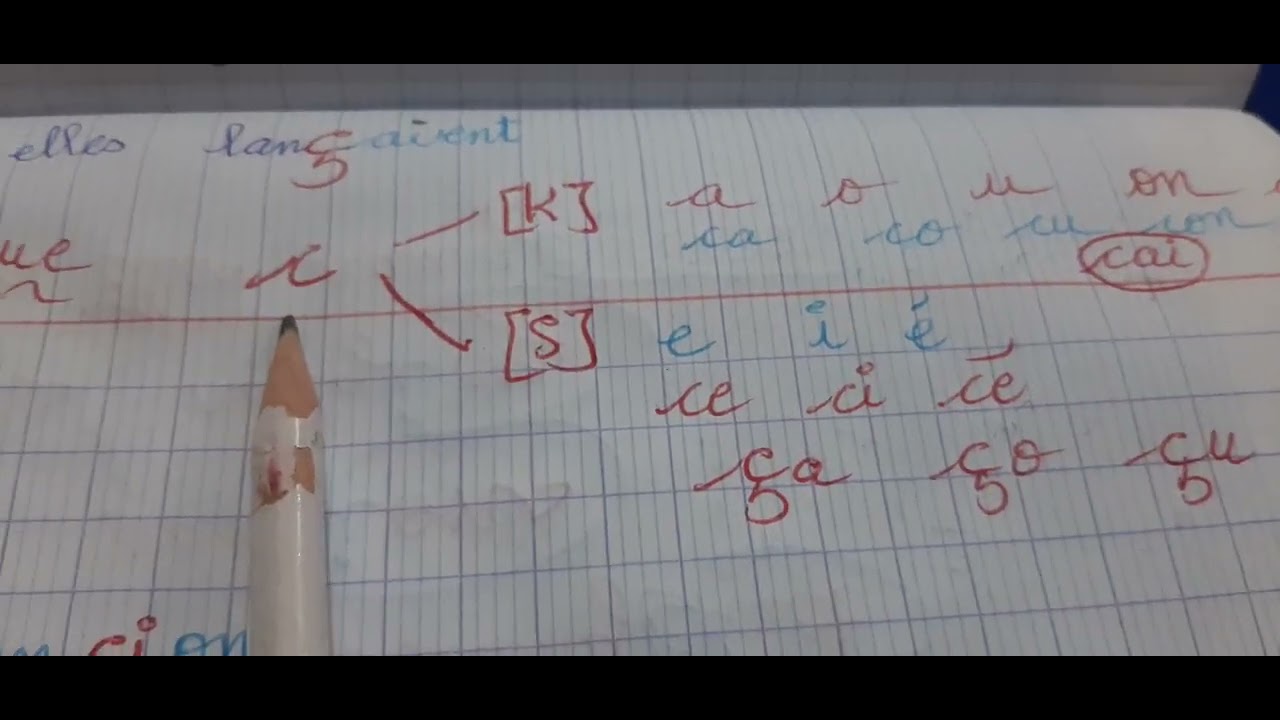 elles lançaient
[K] a o u on
ca co cu con
ue c cai
[S] e i é
ce ci cé
ça ço çu
cion